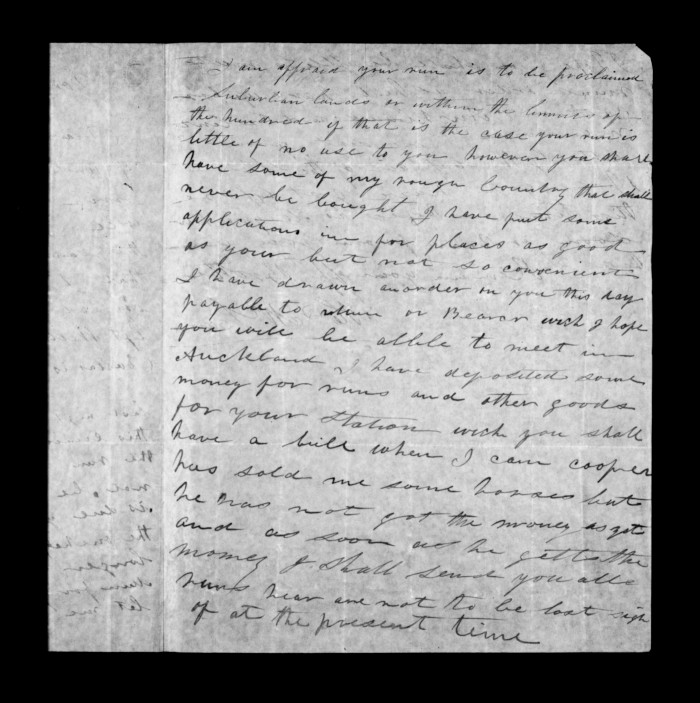 I am affraid your run is to be proclaimed
Suburban lands or within the limits of
the hundred if that is the case your run is
little of no use to you however you shall
have some of my rough Country that shall
never be bought I have put some
applications in for places as good
as your but not so convenient
I have drawn an order on you this day
payable to or Bearer wich I hope
you will be abble to meet in
Auckland I have deposited some
money for runs and other goods
for your Station wich you shall
have a bill when I can cooper
has sold me some horses but
he has not got the money as yet
and as soon as he getts the
money I shall send you all
runs hear are not to be lost sigh
of at the present time